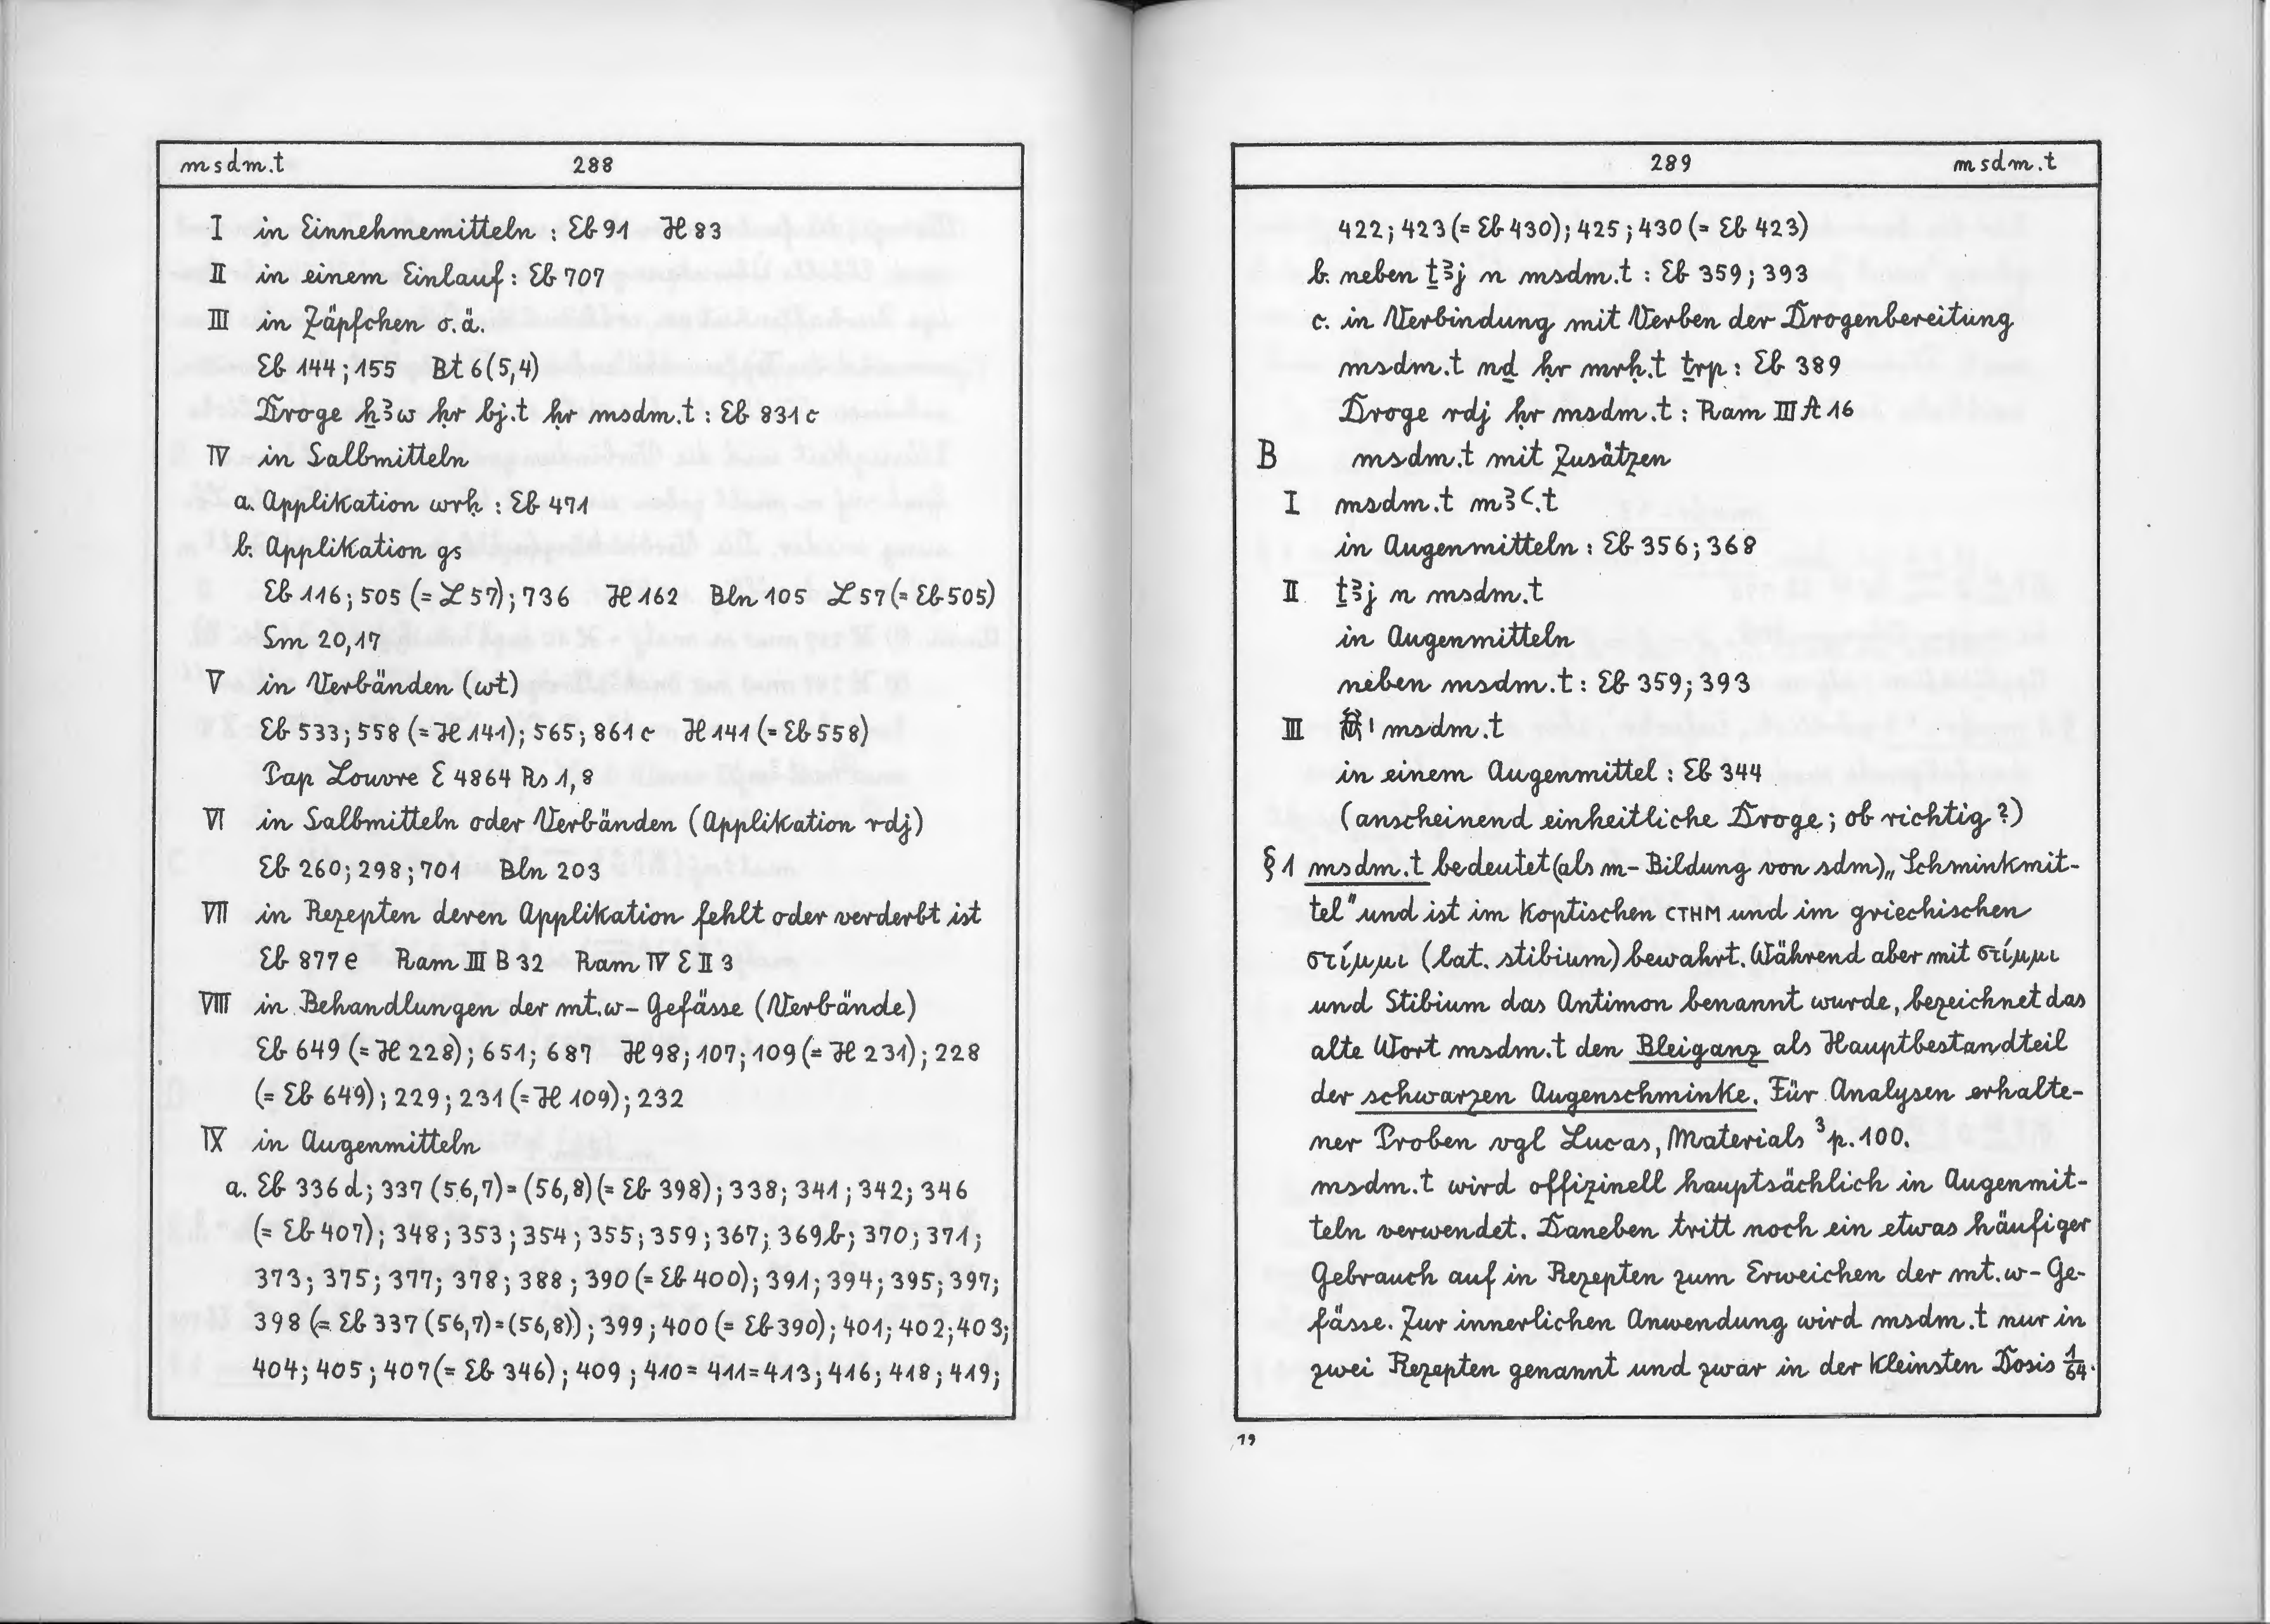 msdm.t 288
I in Einnehmemitteln : Eb 91 H 83
II in einem Einlauf : Eb 707
III in Zäpfchen o.ä.
Eb 144 ; 155 Bt 6 (5,4)
Droge ẖꜣw ḥr bj.t ḥr msdm.t : Eb 831 c
IV in Salbmitteln
a. Applikation wrḥ : Eb 471
b. Applikation gs
Eb 116 ; 505 (= L 57) ; 736 H 162 Bln 105 L 57 (= Eb 505)
Sm 20,17
V in Verbänden (wt)
Eb 533 ; 558 (= H 141) ; 565 ; 861 c H 141 (= Eb 558)
Pap Louvre E 4864 Rs 1,8
VI in Salbmitteln oder Verbänden (Applikation rdj)
Eb 260 ; 298 ; 701 Bln 203
VII in Rezepten deren Applikation fehlt oder verderbt ist
Eb 877 e Ram III B 32 Ram IV E II 3
VIII in Behandlungen der mt.w- Gefässe (Verbände)
Eb 649 (= H 228) ; 651 ; 687 H 98 ; 107 ; 109 (= H 231) ; 228
(= Eb 649) ; 229 ; 231 (= H 109) ; 232
IX in Augenmitteln
a. Eb 336 d ; 337 (56,7) = (56,8) (= Eb 398) ; 338 ; 341 ; 342 ; 346
(= Eb 407) ; 348 ; 353 ; 354 ; 355 ; 359 ; 367 ; 369 b ; 370 ; 371 ;
373 ; 375 ; 377 ; 378 ; 388 ; 390 (= Eb 400) ; 391 ; 394 ; 395 ; 397 ;
398 (= Eb 337 (56,7) = (56,8)) ; 399 ; 400 (= Eb 390) ; 401 ; 402 ; 403 ;
404 ; 405 ; 407 (= Eb 346) ; 409 ; 410 = 411 = 413 ; 416 ; 418 ; 419 ;
289 msdm.t
422 ; 423 (= Eb 430) ; 425 ; 430 (= Eb 423)
b. neben ṯꜣj n msdm.t : Eb 359 ; 393
c. in Verbindung mit Verben der Drogenbereitung
msdm.t nḏ ḥr mrḥ.t ṯrp : Eb 389
Droge rdj ḥr msdm.t : Ram III A 16
B msdm.t mit Zusätzen
I msdm.t mꜣꜥ.t
in Augenmitteln : Eb 356 ; 368
II ṯꜣj n msdm.t
in Augenmitteln
neben msdm.t : Eb 359 ; 393
III msdm.t
in einem Augenmittel : Eb 344
(anscheinend einheitliche Droge ; ob richtig ?)
§ 1 msdm.t bedeutet (als m- Bildung von sdm) „Schminkmit-
tel" und ist im Koptischen ⲥⲧⲏⲙ und im griechischen
στίμμι (lat. stibium) bewahrt. Während aber mit στίμμι
und Stibium das Antimon benannt wurde, bezeichnet das
alte Wort msdm.t den Bleiganz als Hauptbestandteil
der schwarzen Augenschminke. Für Analysen erhalte-
ner Proben vgl Lucas, Materials ³ p. 100.
msdm.t wird offizinell hauptsächlich in Augenmit-
teln verwendet. Daneben tritt noch ein etwas häufiger
Gebrauch auf in Rezepten zum Erweichen der mt.w- Ge-
fässe. Zur innerlichen Anwendung wird msdm.t nur in
zwei Rezepten genannt und zwar in der kleinsten Dosis 1/64.
19